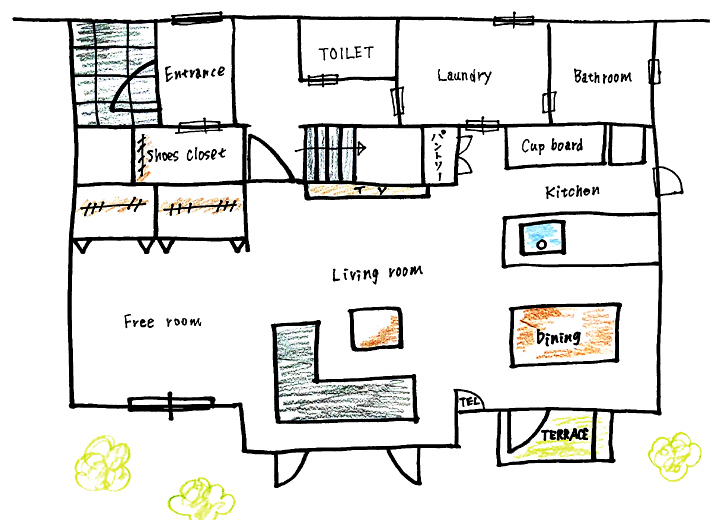 TOILET
Entrance
Laundry
Bathroom
Shoes closet
パントリー
Cup board
TV
Kitchen
Living room
Free room
Dining
TEL
TERRACE